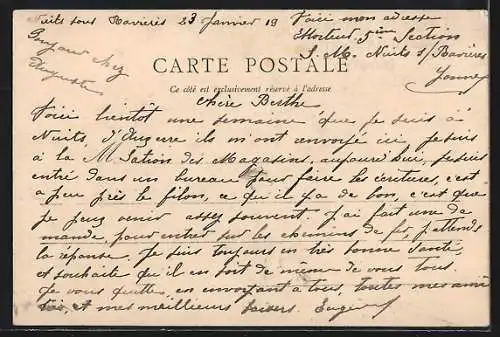 Nuits sous Ravières 23 Janvier 19
Voici mon adresse
5ème Section
S. M. Nuits s/Ravières
Yonne
Bonjour chez
Augustin
CARTE POSTALE
Ce côté est exclusivement réservé à l'adresse
Chère Berthe
Voici bientôt une semaine que je suis à
Nuits, d'Auxerre ils m'ont envoyé ici, je suis
à la M. Sation des Magasins, aujourd'hui, je suis
entré dans un bureau pour faire les écritures, c'est
a peu près le filon, ce qu'il y a de bon, c'est que
je peux venir assez souvent j'ai fait une de
mande, pour entrer sur les chemins de fer, j'attends
la réponse. Je suis toujours en très bonne santé,
et souhaite qu'il en soit de même de vous tous.
Je vous quitte, en envoyant à tous, toutes mes ami
tié, et mes meilleurs baisers. Eugène